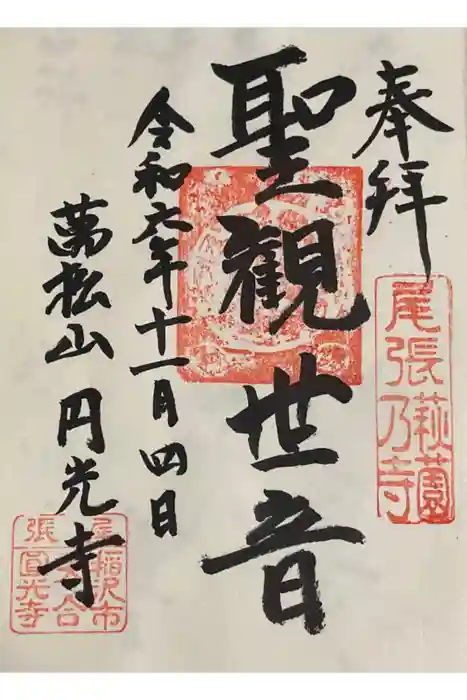 奉拝
尾張
萩園
乃寺
聖観世音
令和六年十一月四日
萬松山 円光寺
尾
稲沢市
張
圓光寺